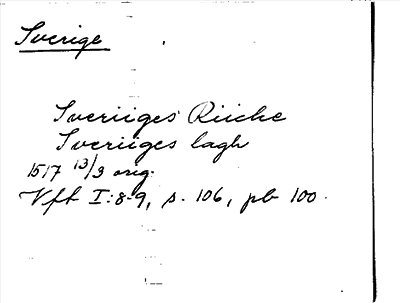 Sverige
Sveriiges Riiche
Sveriiges lagh
1517 13/3 orig.
Vft I:8-9, s. 106, pb 100.